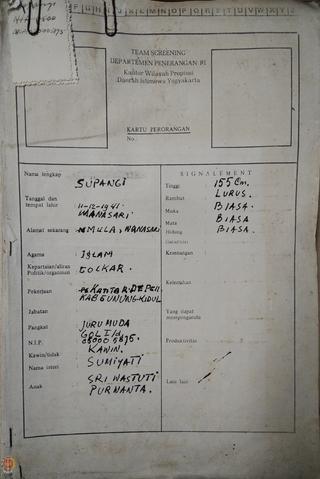 TEAM SCREENING
DEPARTEMEN PENERANGAN RI
Kantor Wilayah Propinsi
Daerah Istimewa Yogyakarta
KARTU PERORANGAN
No.
Nama lengkap SUPANGI
Tanggal dan tempat lahir 11-12-1941. WANASARI
Alamat sekarang MULA, WANASARI
Agama ISLAM
Kepartaian/aliran Politik/organisasi GOLKAR.
Pekerjaan KANTOR DEPEN KAB GUNUNG KIDUL
Jabatan
Pangkat JURU MUDA GOL I/a
N.I.P.
Kawin/tidak KAWIN.
Nama isteri SUMIYATI
Anak SRI WASTUTI PURNANTA.
SIGNALEMENT
Tinggi 155 Cm.
Rambut LURUS.
Muka BIASA.
Mata BIASA
Hidung BIASA.
Kelemahan
Yang dapat mempengaruhi
Produktivitas
Lain lain